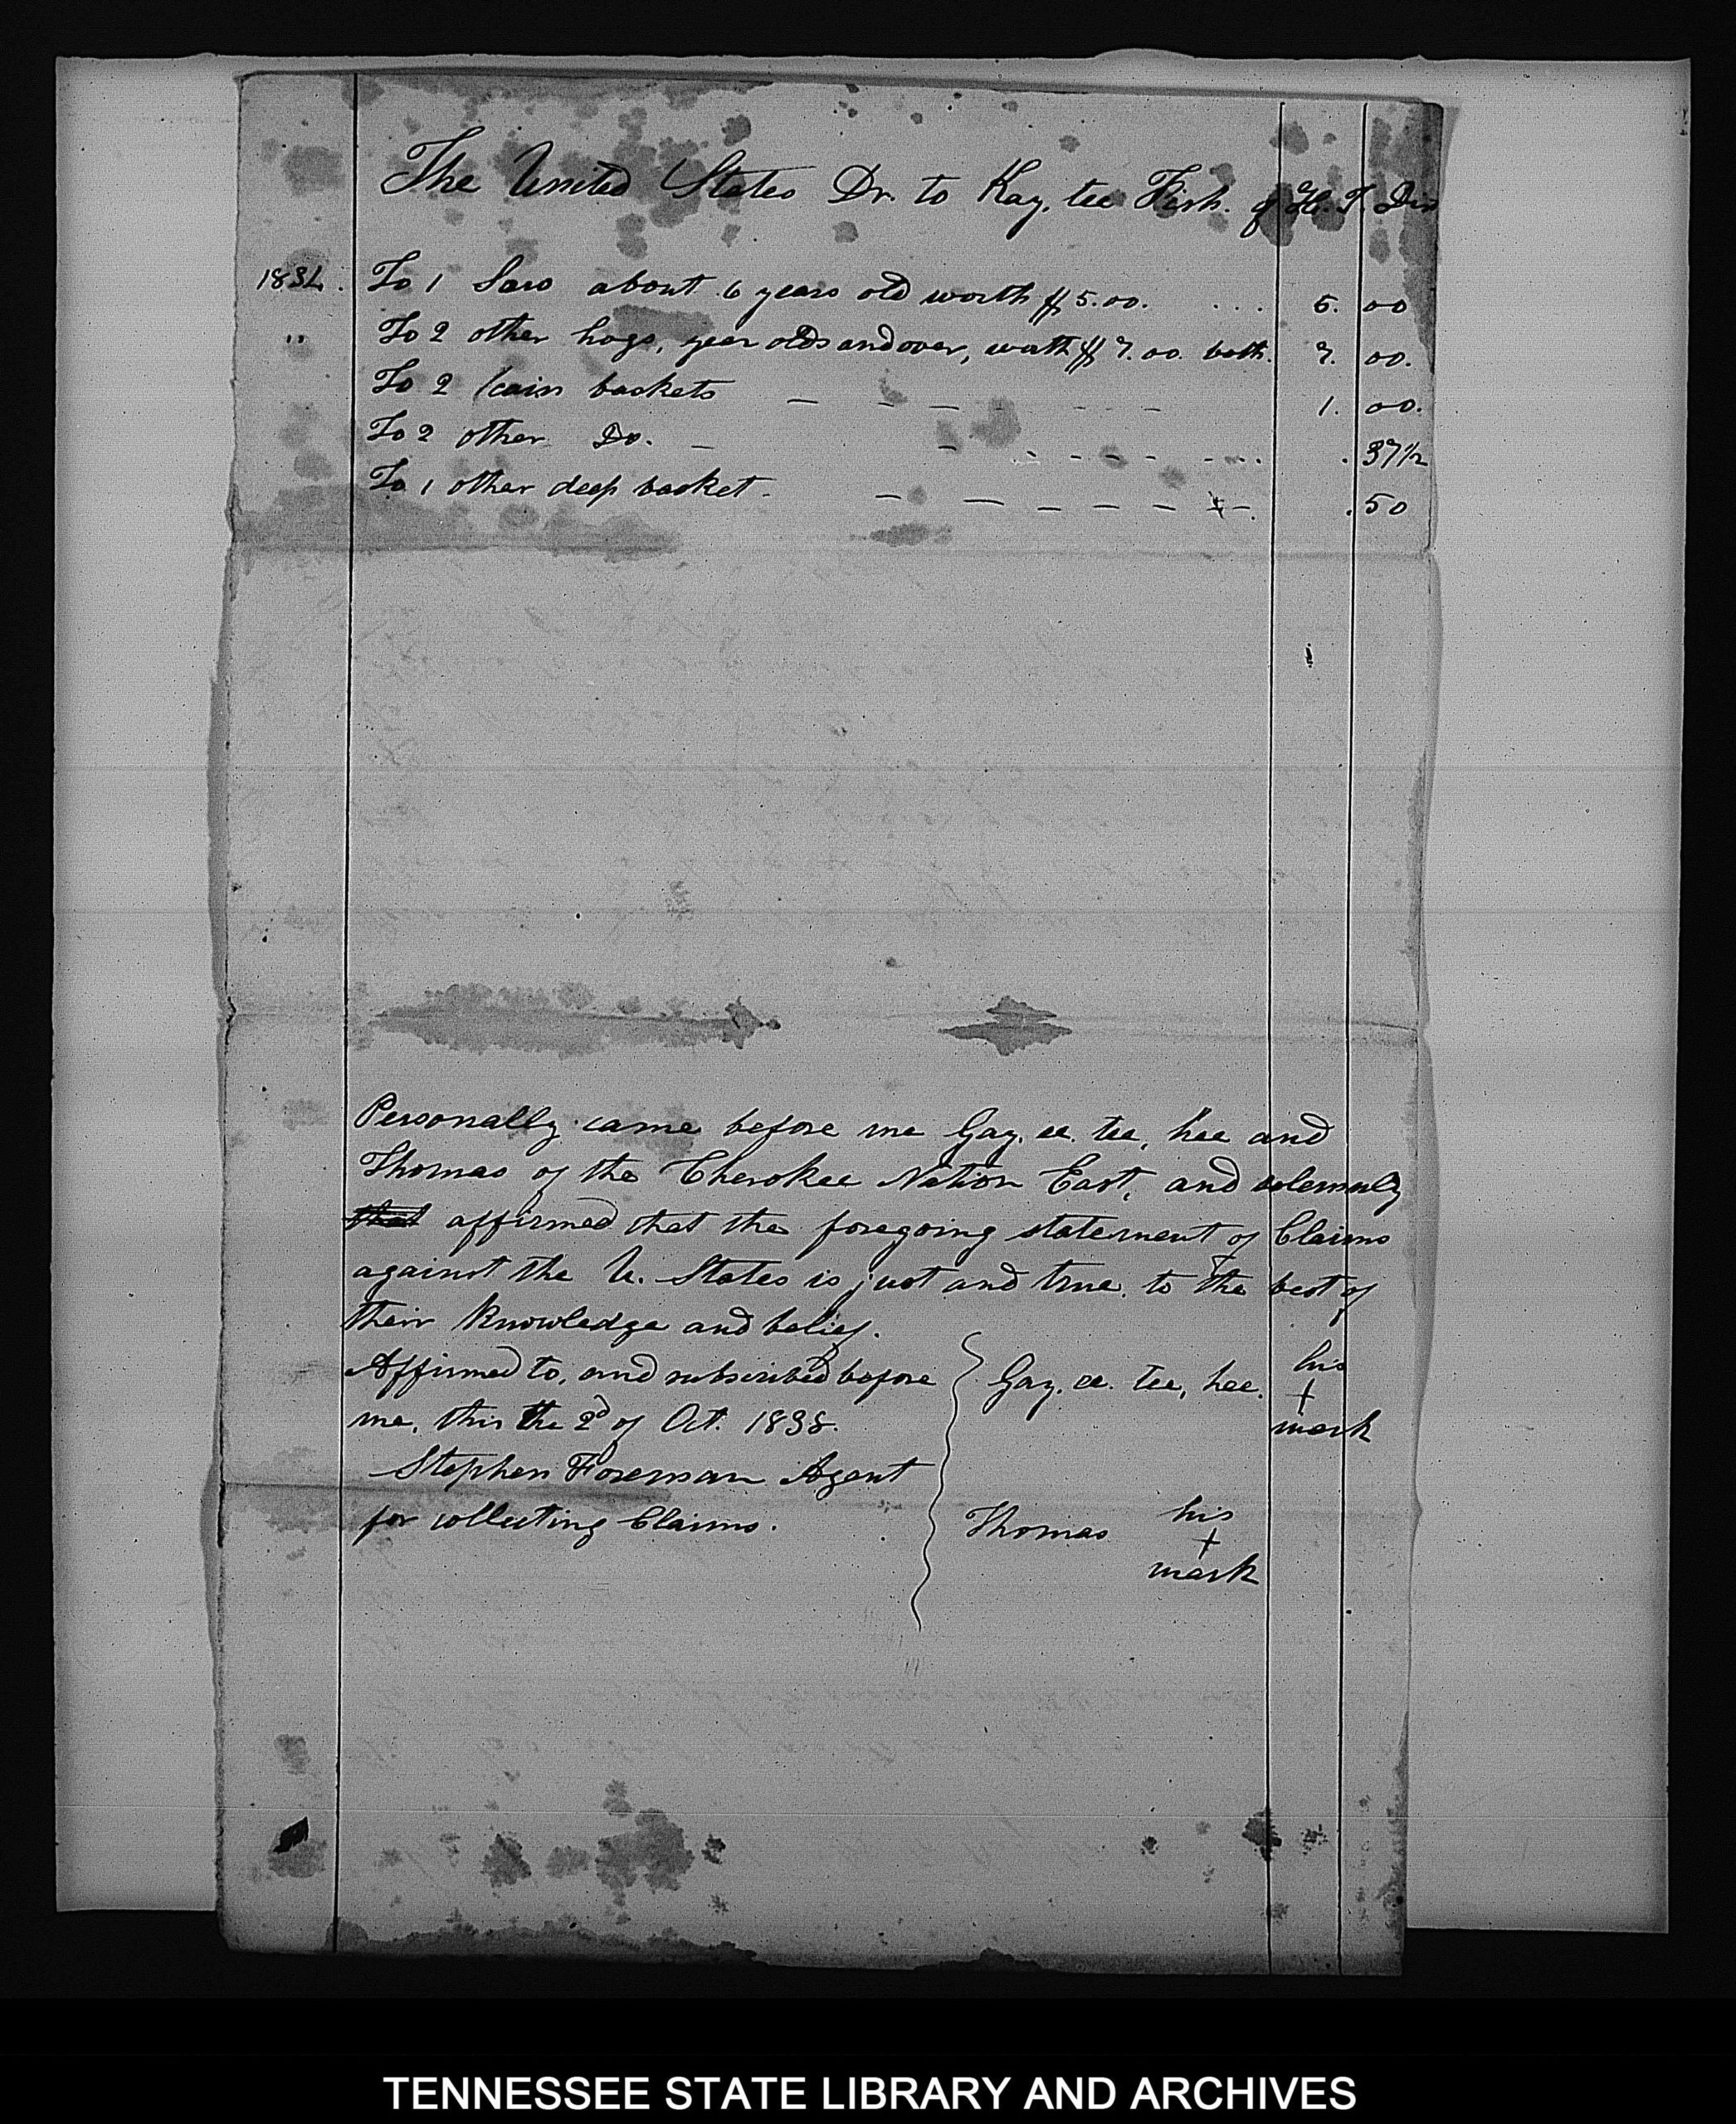 The United States Dr. to Kay. tee Fish. of H. T. Dis
1834. To 1 Sow about 6 years old worth $5.00. . . . 5. 00
" To 2 other hogs, year olds and over, worth $7.00. both. 7. 00.
To 2 cain baskets — — — - - - — 1. 00.
To 2 other Do. — — - - - - - - - . 37 1/2
To 1 other deep basket. — — — — — — . 50
Personally came before me Gay. ee. tee, hee and
Thomas of the Cherokee Nation East, and solemnly
that affirmed that the foregoing statement of Claims
against the U. States is just and true. to the best of
their knowledge and belief.
Affirmed to, and subscribed before
me, this the 2d of Oct. 1838.
Stephen Foreman Agent
for collecting Claims.
Gay. ee. tee, hee. his
+
mark
Thomas his
+
mark
TENNESSEE STATE LIBRARY AND ARCHIVES